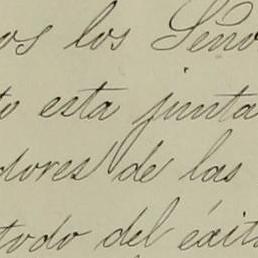 os los Seño
to esta junta
dores de las
todo del éxit